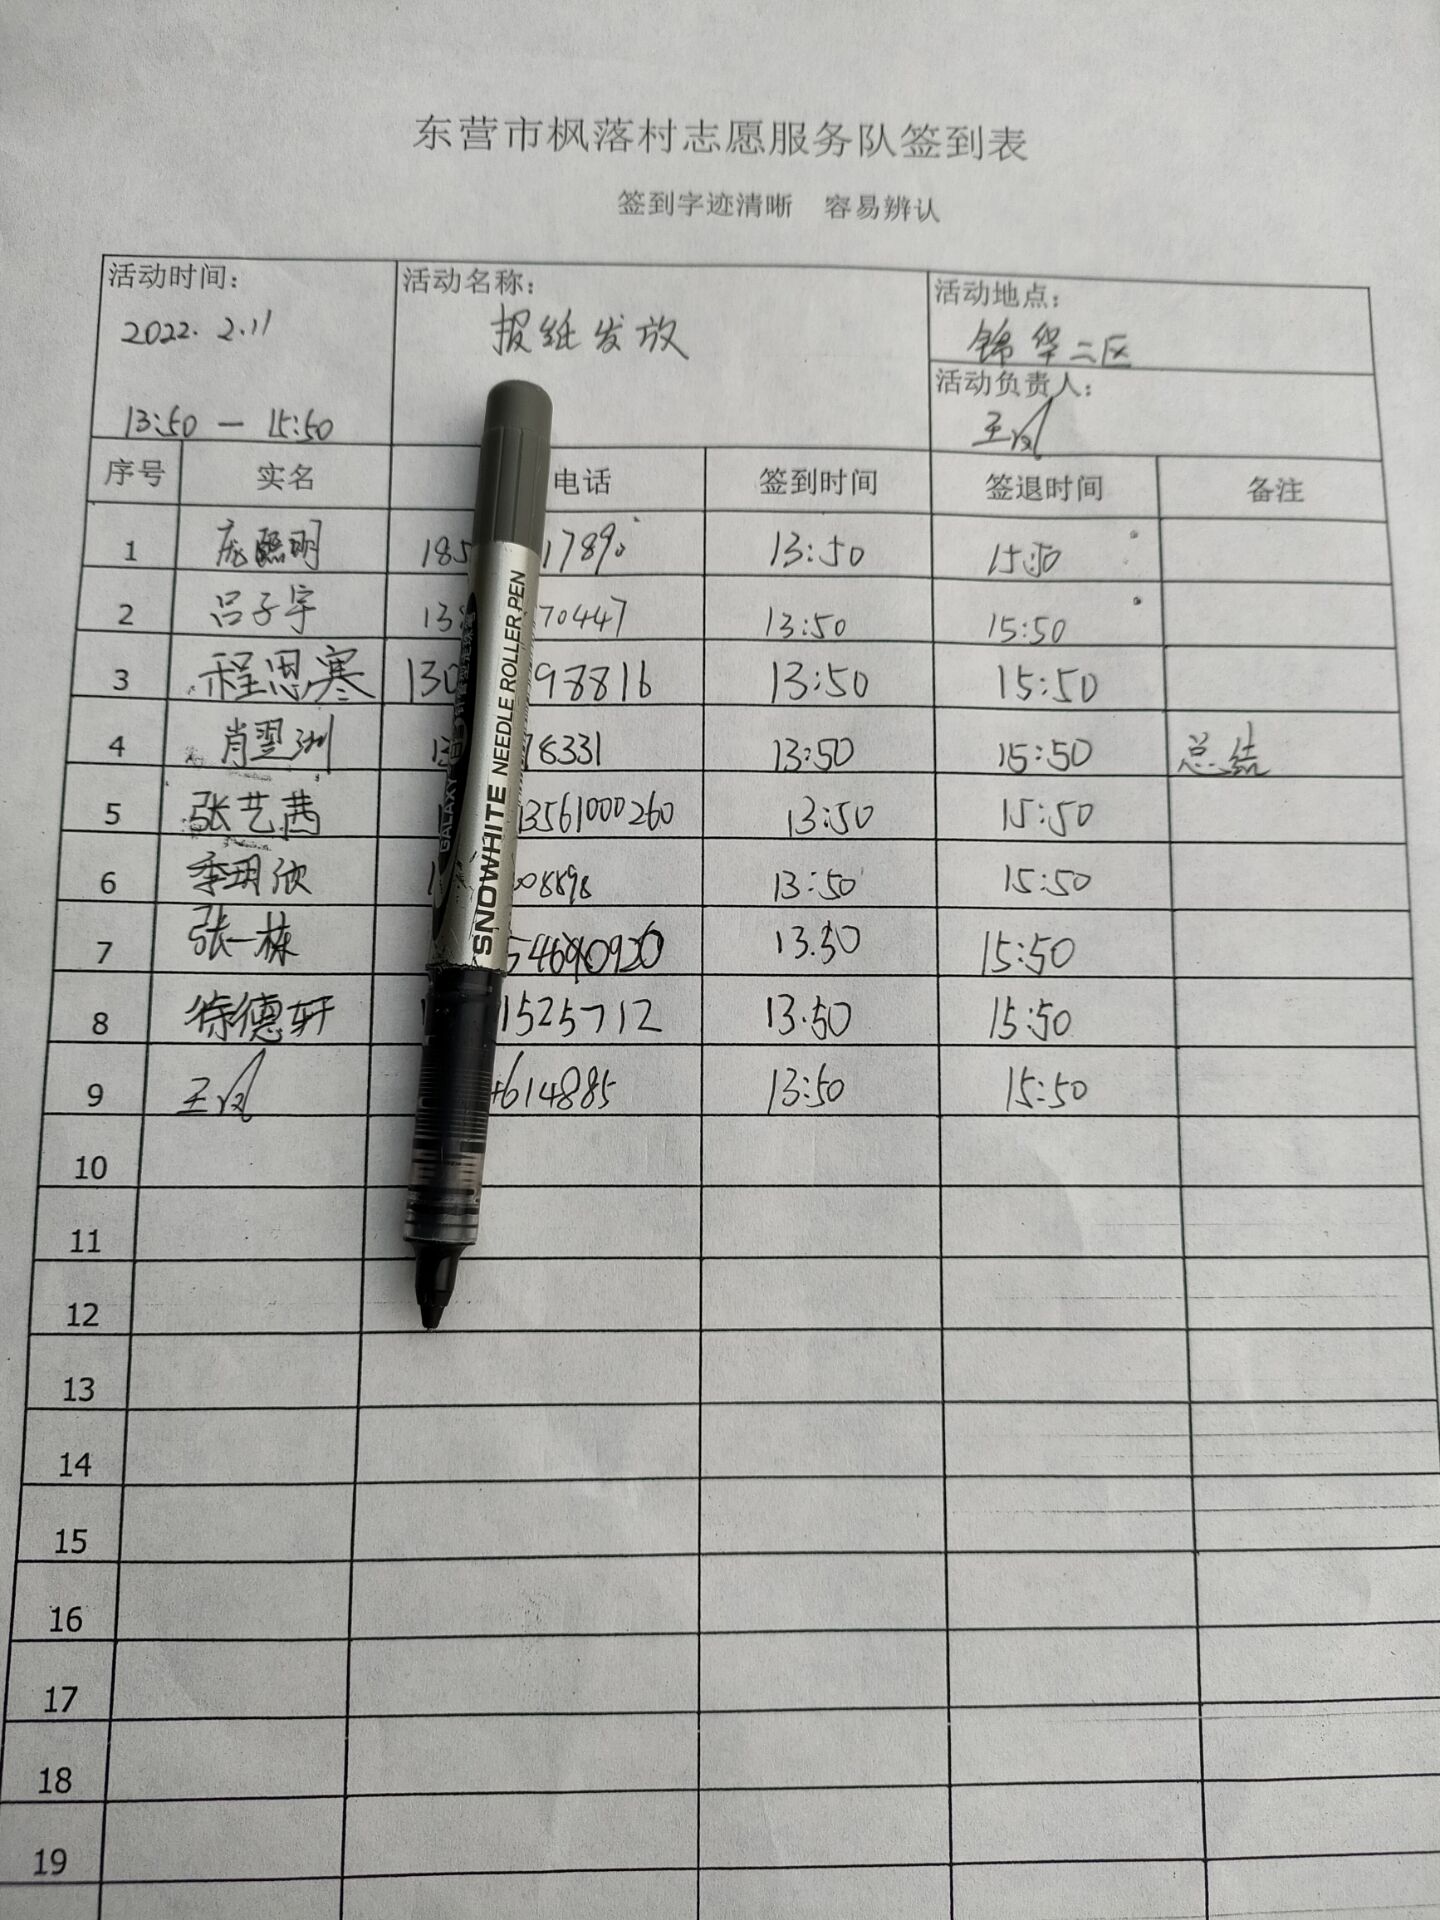 东营市枫落村志愿服务队签到表
签到字迹清晰 容易辨认
活动时间: 活动名称: 活动地点:
2022. 2.11 报纸发放 锦华二区
活动负责人:
13:50 — 15:50 王凤
序号 实名 电话 签到时间 签退时间 备注
1 庞熙明 185 1789 13:50 15:50
2 吕子宇 13 70447 13:50 15:50
3 程思寒 130 98816 13:50 15:50
4 肖翌洲 13 78331 13:50 15:50 总结
5 张艺茜 13561000260 13:50 15:50
6 季玥欣 1 08898 13:50 15:50
7 张一栋 13.50 15:50
8 徐德轩 1525712 13.50 15:50
9 王凤 614885 13:50 15:50
10
11
12
13
14
15
16
17
18
19
GALAXY
SNOWHITE NEEDLE ROLLER PEN